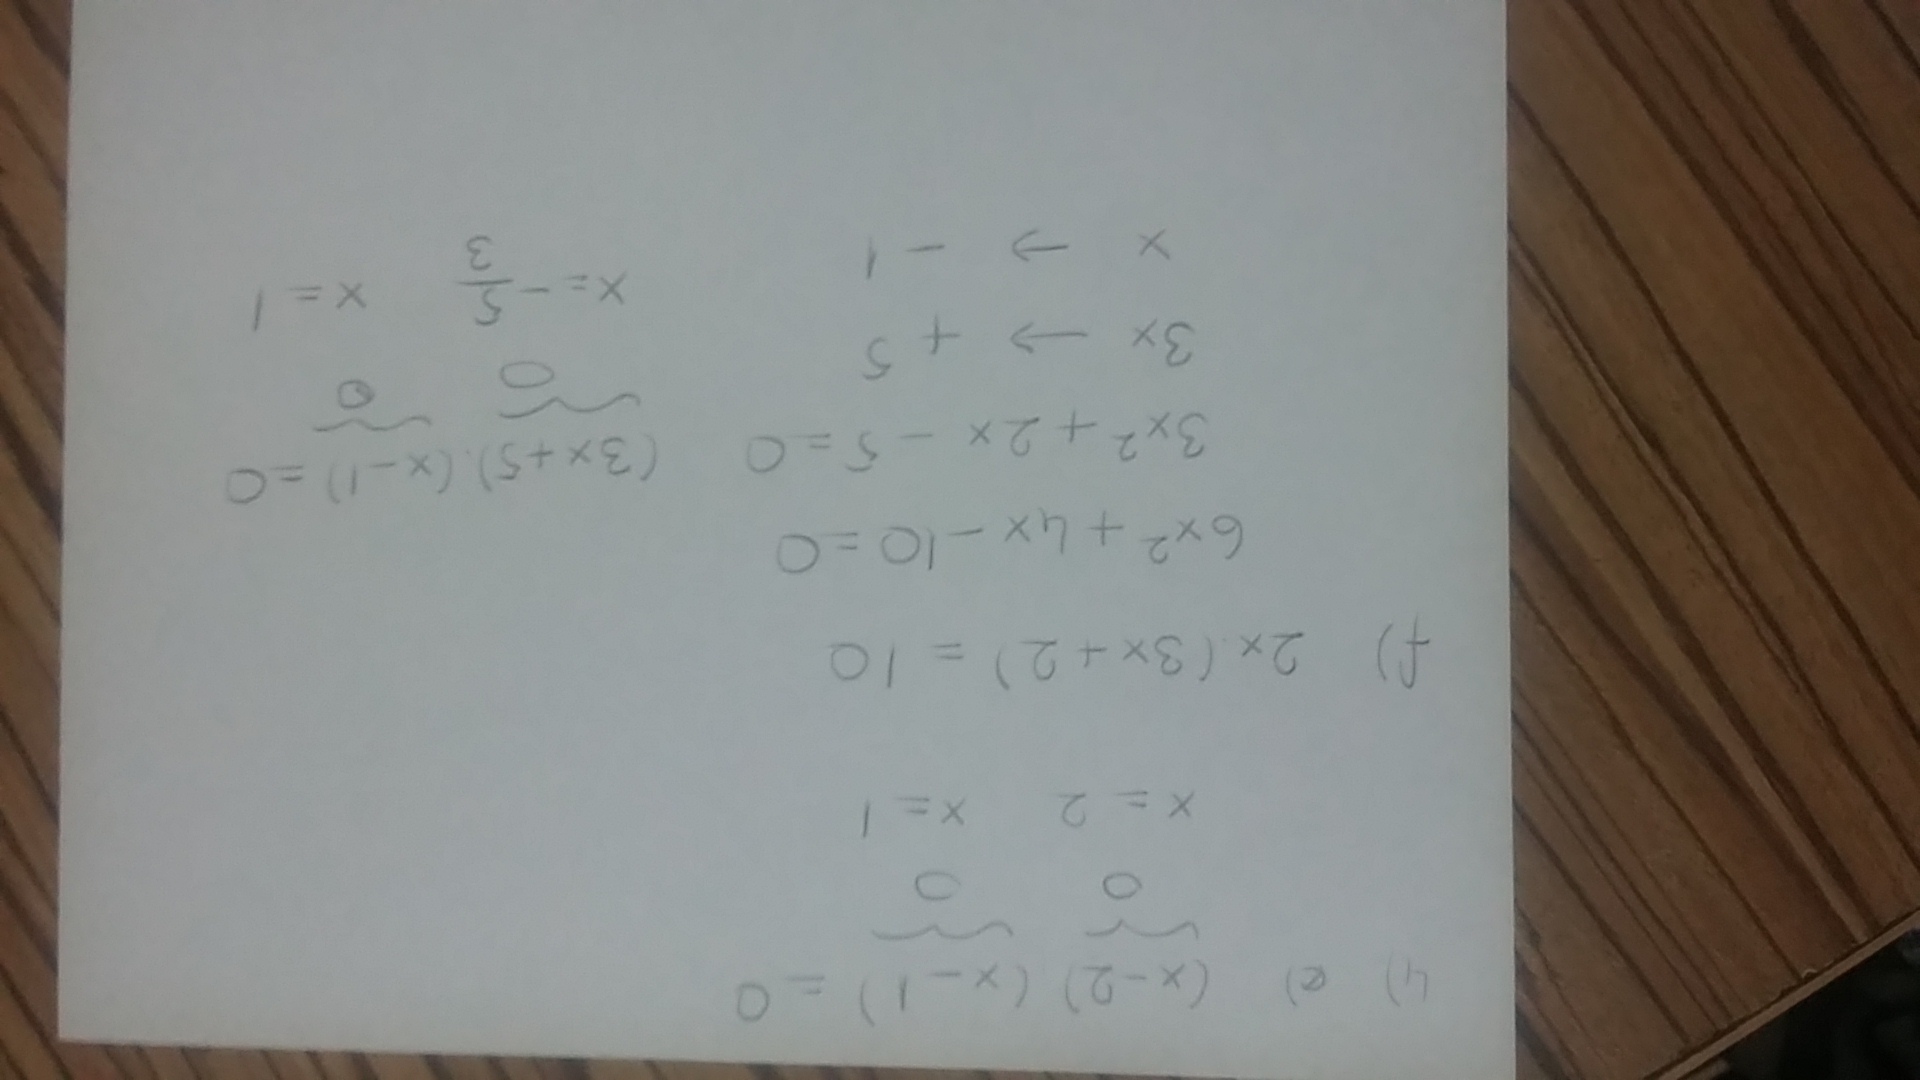 4) e) (x-2) (x-1) = 0
0 0
x = 2 x = 1
f) 2x.(3x+2) = 10
6x² + 4x - 10 = 0
3x² + 2x - 5 = 0 (3x+5).(x-1) = 0
0 0
3x → + 5 x = -5/3 x = 1
x → - 1